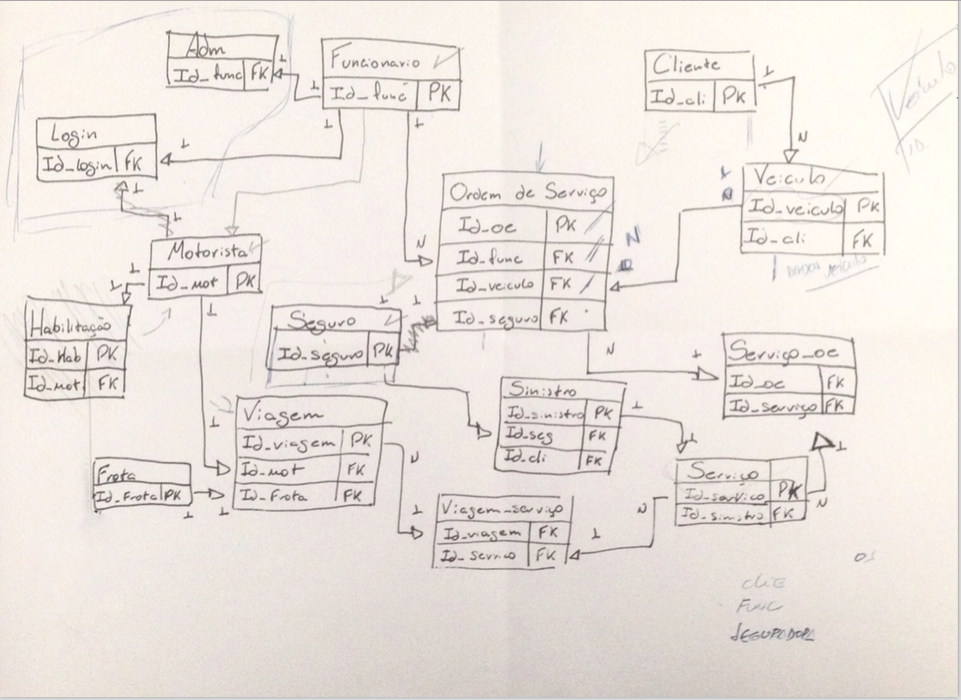 Adm
Id_func FK
1
1
Funcionario
Id_func PK
1
1
Cliente
Id_cli PK
1
N
Veículo
ID.
Login
Id_login FK
1
1
1
Motorista
Id_mot PK
1
1
1
Habilitação
Id_Hab PK
Id_mot FK
Ordem de Serviço
Id_oe PK
Id_func FK
Id_veiculo FK
Id_seguro FK
N
N
1
Veiculo
Id_veiculo PK
Id_cli FK
1
N
veículo
Seguro
Id_seguro PK
1
1
N
1
Serviço_oe
Id_oe FK
Id_serviço FK
Sinistro
Id_sinistro PK
Id_seg FK
Id_cli FK
1
1
Viagem
Id_viagem PK
Id_mot FK
Id_frota FK
1
N
Frota
Id_frota PK
1
1
Viagem_serviço
Id_viagem FK
Id_servico FK
1
1
N
Serviço
Id_servico PK
Id_sinistro FK
1
N
OS
CliE
FUNC
SEGURADORA